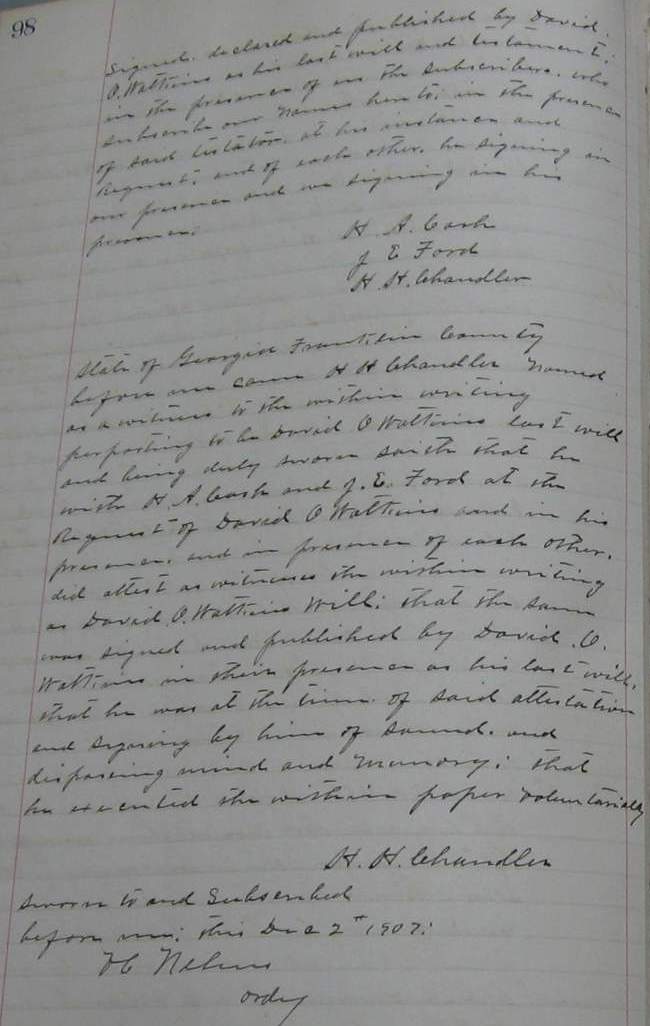 98
Signed. declared and published by David.
O. Watkins as his last will and testament:
in the presence of us the subscribers. who
subscribe our names here to; in the presence
of said testator. at his instance and
Request; and of each other. he signing in
our presence and we signing in his
presence.
H. A. Cash
J E Ford
H. H. Chandler
State of Georgia Franklin County
before me came H H Chandler named
as a witness to the within writing
purporting to be David O Watkins last will
and being duly sworn saith that he
with H. A. Cash and J. E. Ford at the
Request of David O Watkins and in his
presence. and in presence of each other.
did attest as witnesses the within writing
as David O. Watkins Will; that the same
was signed and published by David. O.
Watkins in their presence as his last will.
that he was at the time. of said attestation
and signing by him of sound. and
disposing mind and memory; that
he executed the within paper voluntarialy
H. H. Chandler
Sworn to and Subscribed
before me; this Dec 2" 1907:
Ordy